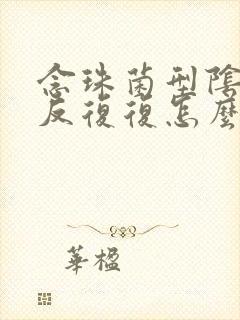 念珠菌型陰
反復復怎麼
華楹